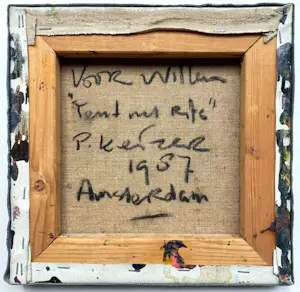 Voor Willem
"Tent met Rifs"
P. Keizer
1987
Amsterdam